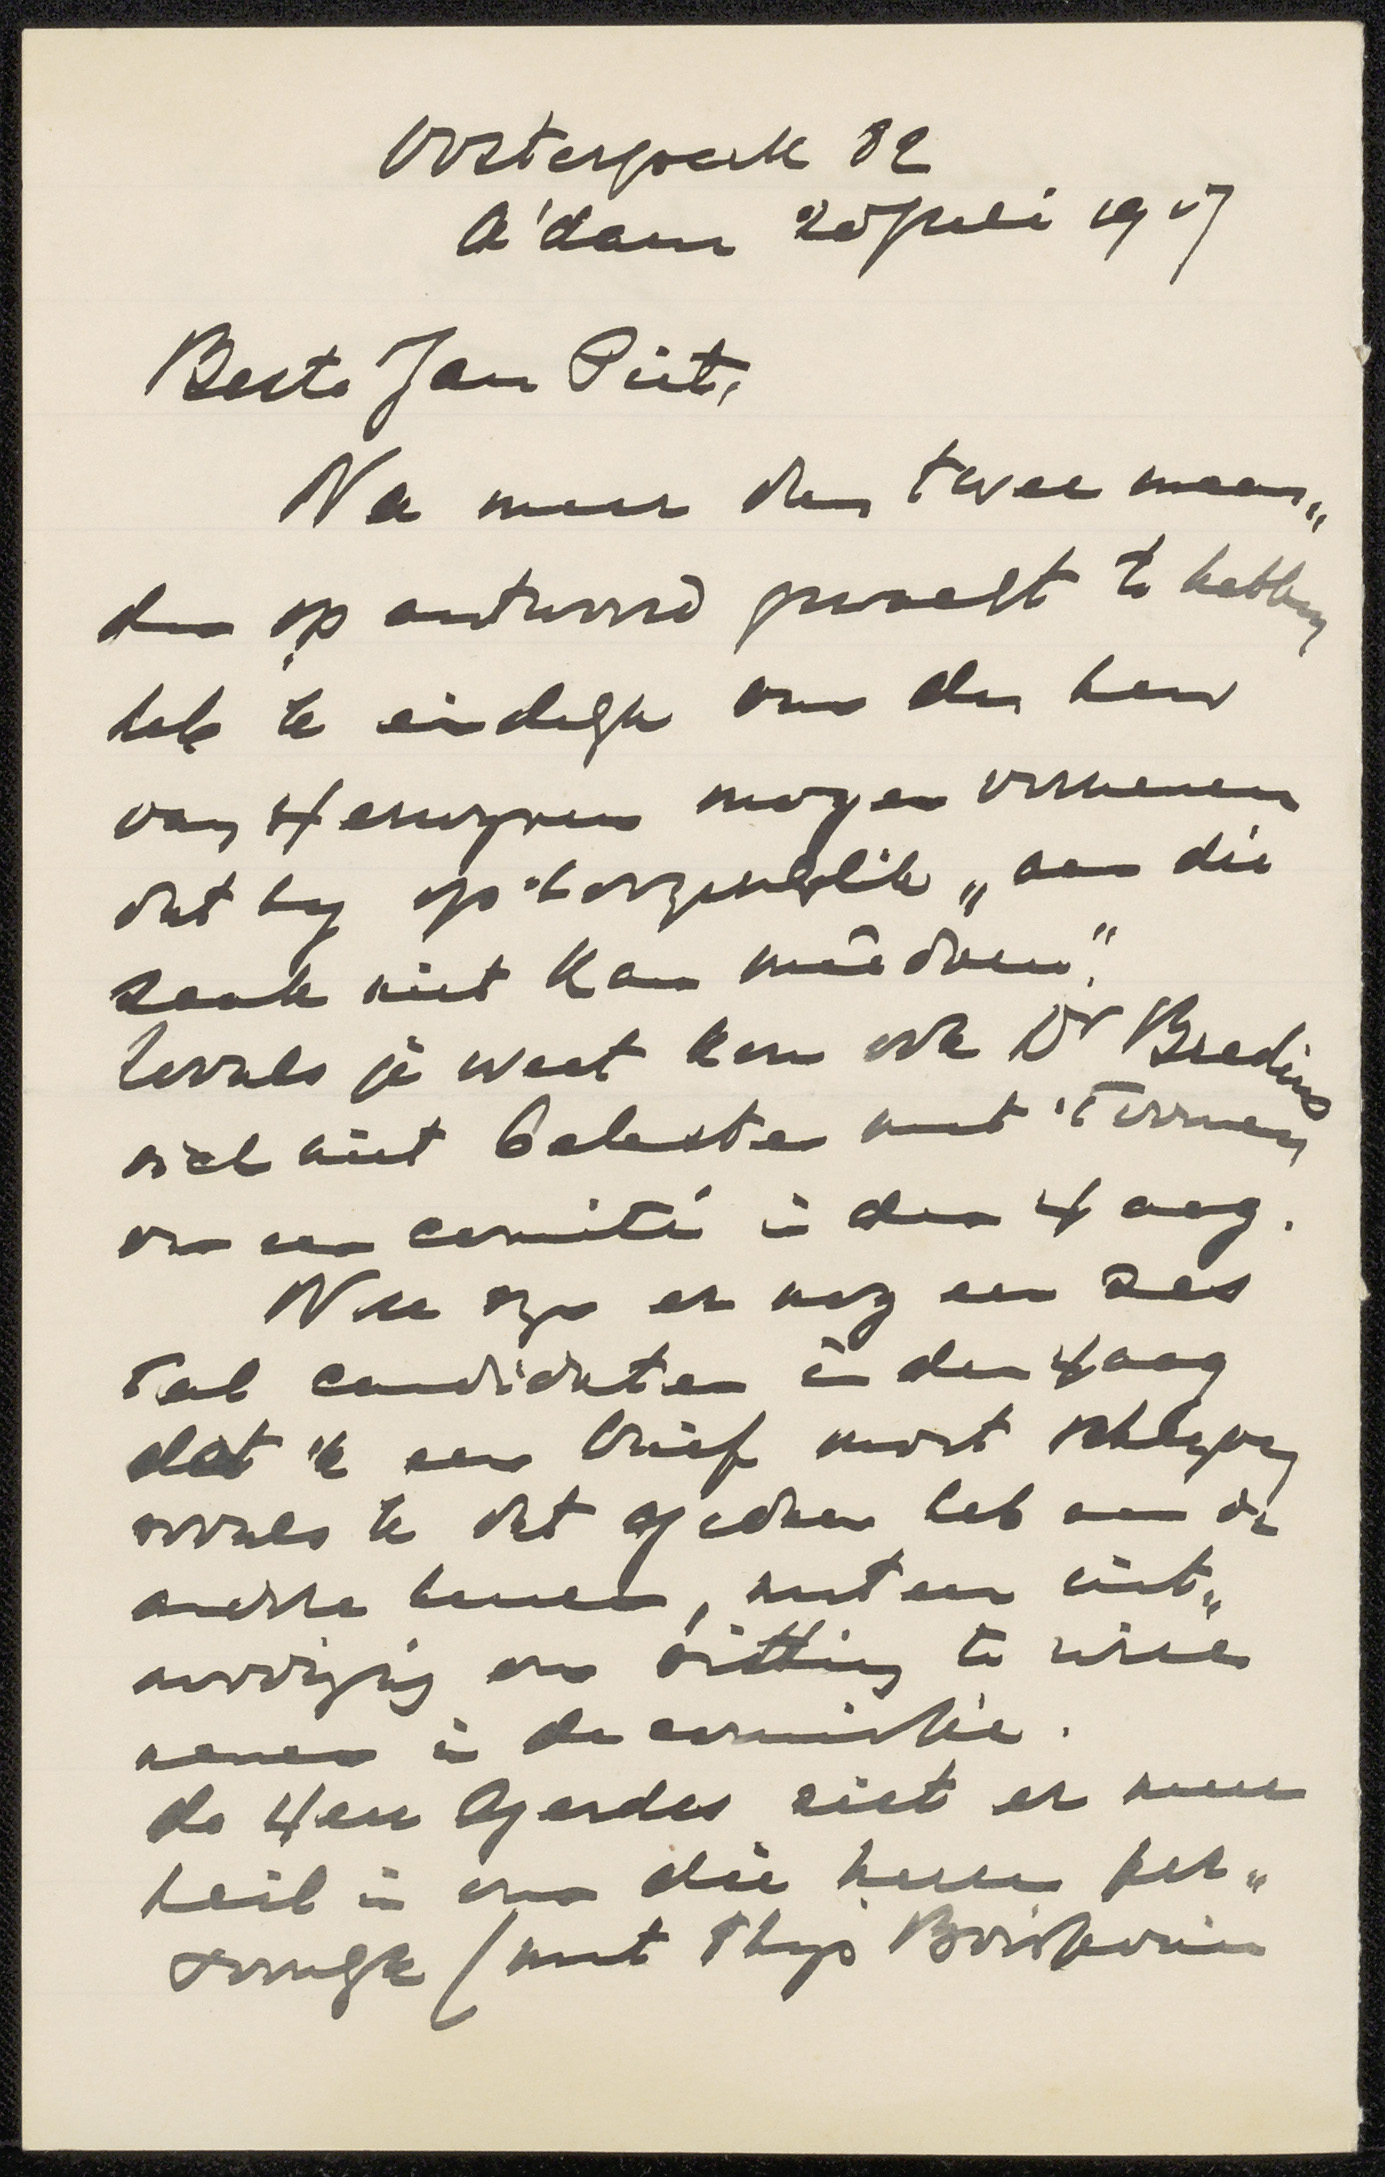 Oosterpark 82
A'dam 20 Juli 19 17
Beste Jan Piet,
Na meer dan twee maan„
den op antwoord gewacht te hebben
heb ik eindelyk van den heer
van mogen vernemen
dat hy op 't oogenblik „aan die
zaak niet kan meêdoen".
Zooals je weet kon ook Dr Bredius
zich niet belasten met 't vormen
van een comité in den Haag.
Nu zyn er nog een zes
tal candidaten in den Haag
dat ik een brief moet schryven
zooals ik dat gedaan heb aan de
andere heeren, met een uit„
noodiging om zitting te willen
nemen in de commissie.
de Heer Gerdes ziet er meer
heil in om die heeren per„
soonlyk (met Thys